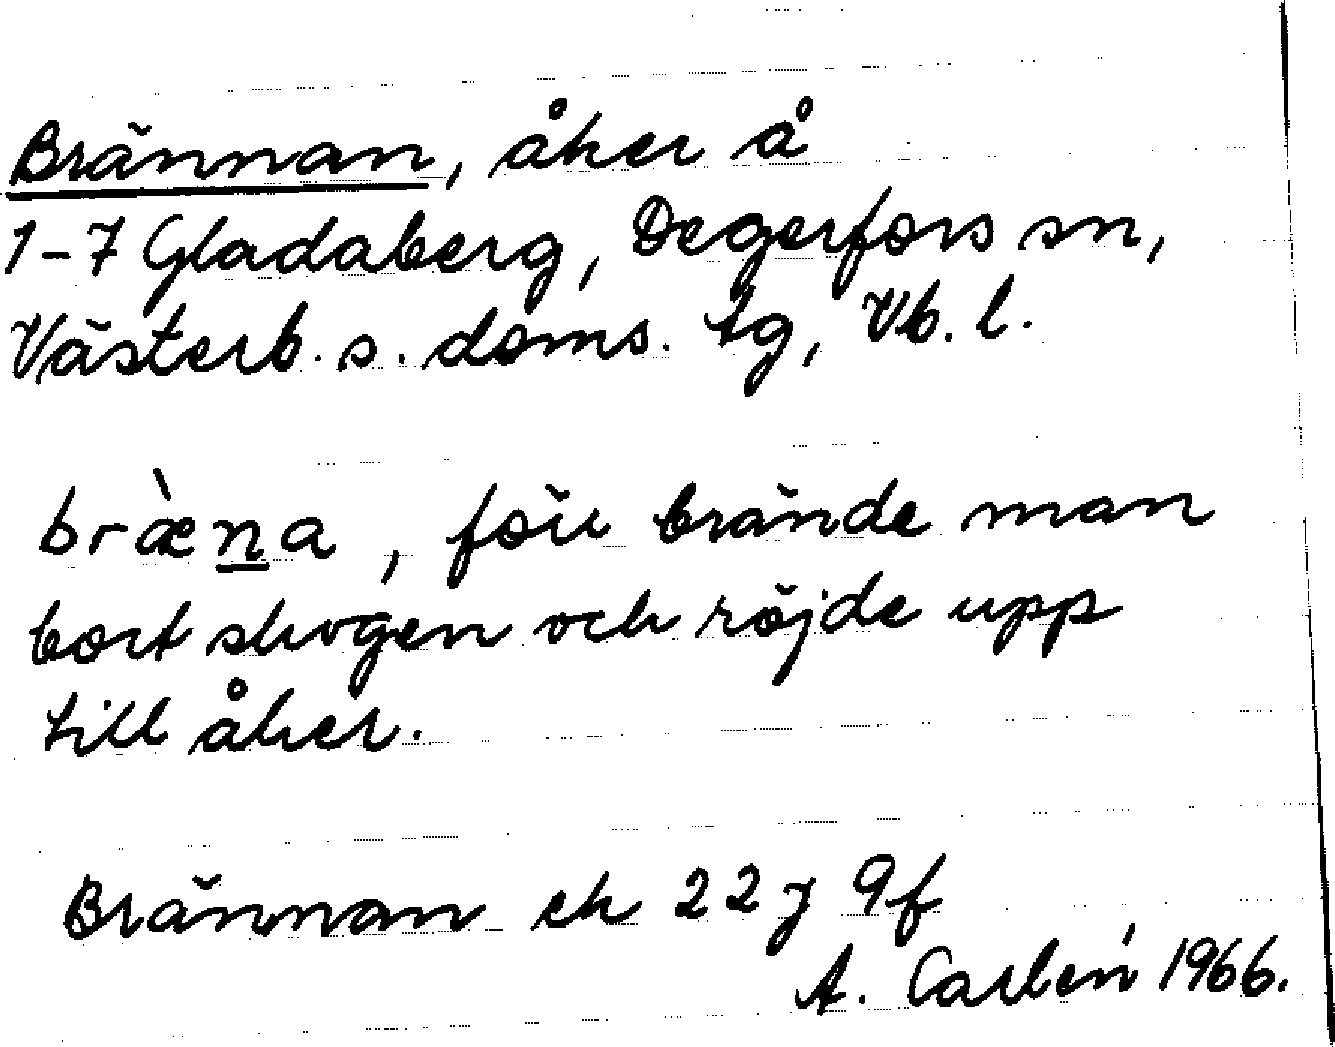 Brännan, åker å
1-7 Gladaberg, Degerfors sn,
Västerb. s. doms. tg, Vb. l.
bræ̀na, förr brände man
bort skogen och röjde upp
till åker.
Brännan ek 22 j 9f
A. Carlén 1966.